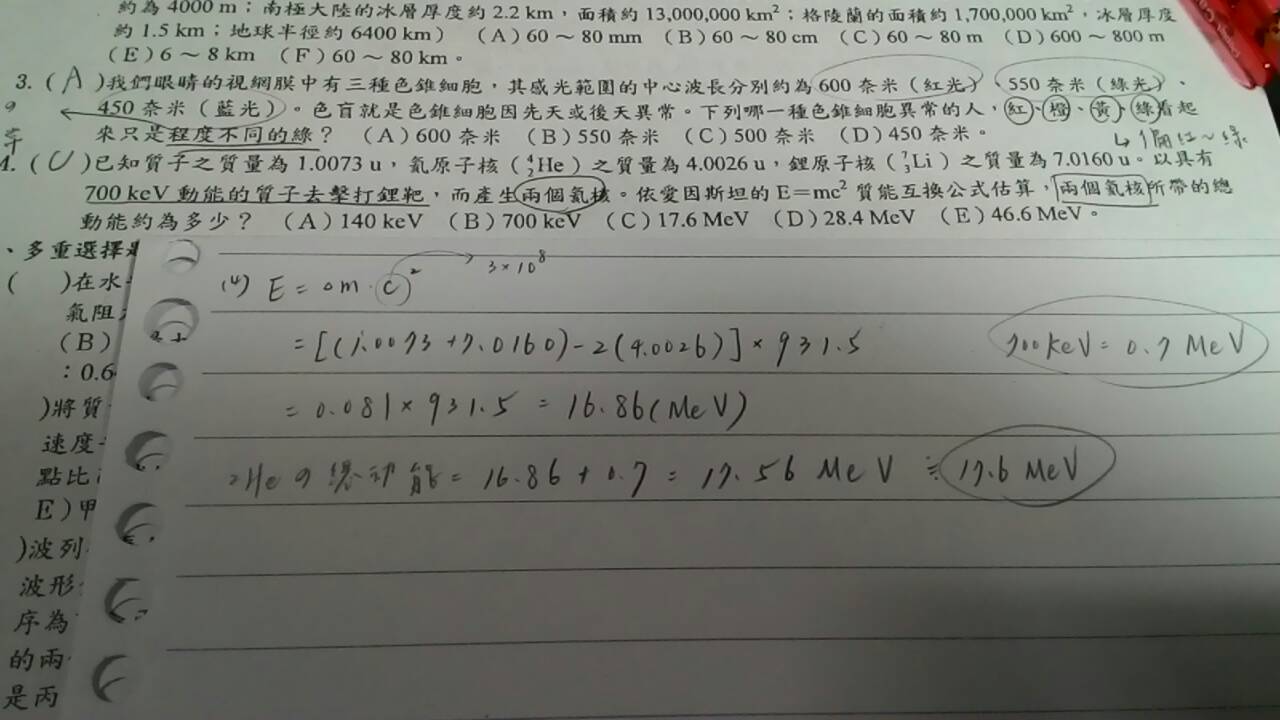 約為 4000 m；南極大陸的冰層厚度約 2.2 km，面積約 13,000,000 km²；格陵蘭的面積約 1,700,000 km²，冰層厚度
約 1.5 km；地球半徑約 6400 km） (A) 60 ～ 80 mm (B) 60 ～ 80 cm (C) 60 ～ 80 m (D) 600 ～ 800 m
(E) 6 ～ 8 km (F) 60 ～ 80 km。
3. ( A )我們眼睛的視網膜中有三種色錐細胞，其感光範圍的中心波長分別約為 600 奈米（紅光）、550 奈米（綠光）、
450 奈米（藍光）。色盲就是色錐細胞因先天或後天異常。下列哪一種色錐細胞異常的人，紅、橙、黃、綠看起
來只是程度不同的綠？ (A) 600 奈米 (B) 550 奈米 (C) 500 奈米 (D) 450 奈米。
4. ( C )已知質子之質量為 1.0073 u，氦原子核（⁴₂He）之質量為 4.0026 u，鋰原子核（⁷₃Li）之質量為 7.0160 u。以具有
700 keV 動能的質子去擊打鋰靶，而產生兩個氦核。依愛因斯坦的 E=mc² 質能互換公式估算，兩個氦核所帶的總
動能約為多少？ (A) 140 keV (B) 700 keV (C) 17.6 MeV (D) 28.4 MeV (E) 46.6 MeV。
、多重選擇
( )在水
氣阻
(B)
：0.6
)將質
速度
點比
E)甲
)波列
波形
序為
的兩
是丙
(4) E = △m·c² 3×10⁸
= [(1.0073+7.0160)-2(4.0026)]×931.5
700 keV = 0.7 MeV
= 0.081×931.5 = 16.86(MeV)
2He の總動能 = 16.86 + 0.7 = 17.56 MeV ≒ 17.6 MeV